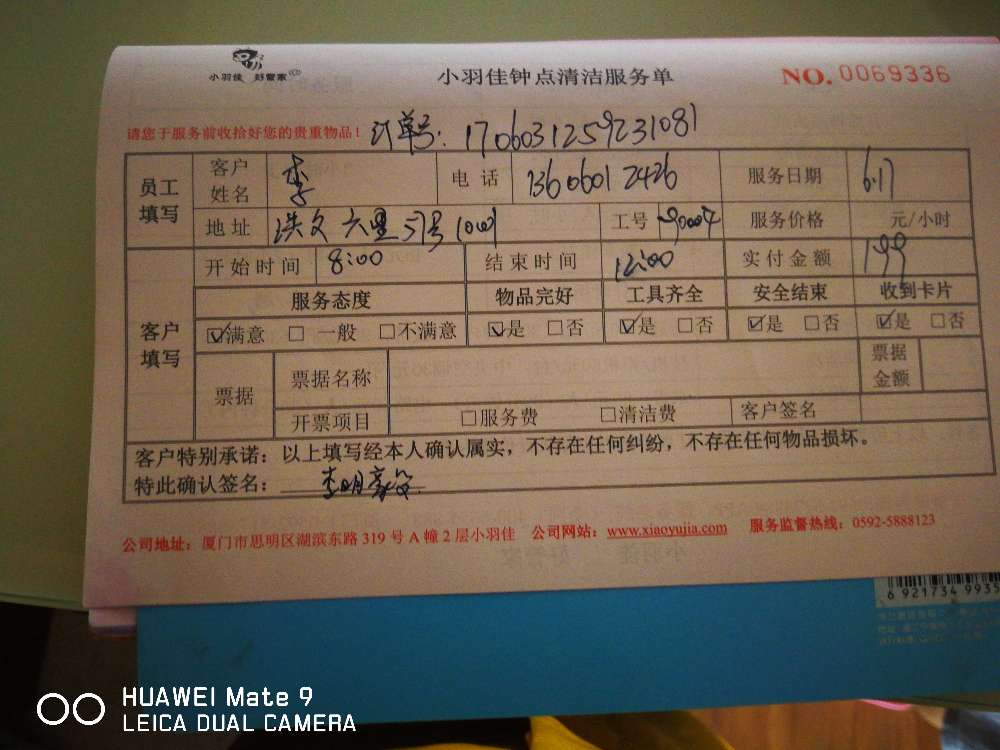 小羽佳 好管家
小羽佳钟点清洁服务单
NO. 0069336
请您于服务前收拾好您的贵重物品！ 订单号: 17060312592310 81
员工填写 客户姓名 李 电话 13606012426 服务日期 6.17
地址 洪文六里 工号 90004 服务价格 元/小时
客户填写 开始时间 8:00 结束时间 12:00 实付金额 199
服务态度 物品完好 工具齐全 安全结束 收到卡片
☑满意 □ 一般 □不满意 ☑是 □否 ☑是 □否 ☑是 □否 ☑是 □否
票据 票据名称 票据金额
开票项目 □服务费 □清洁费 客户签名
客户特别承诺：以上填写经本人确认属实，不存在任何纠纷，不存在任何物品损坏。
特此确认签名： 李明
公司地址：厦门市思明区湖滨东路 319 号 A 幢 2 层小羽佳 公司网站：www.xiaoyujia.com 服务监督热线：0592-5888123
6 921734 9935
HUAWEI Mate 9
LEICA DUAL CAMERA